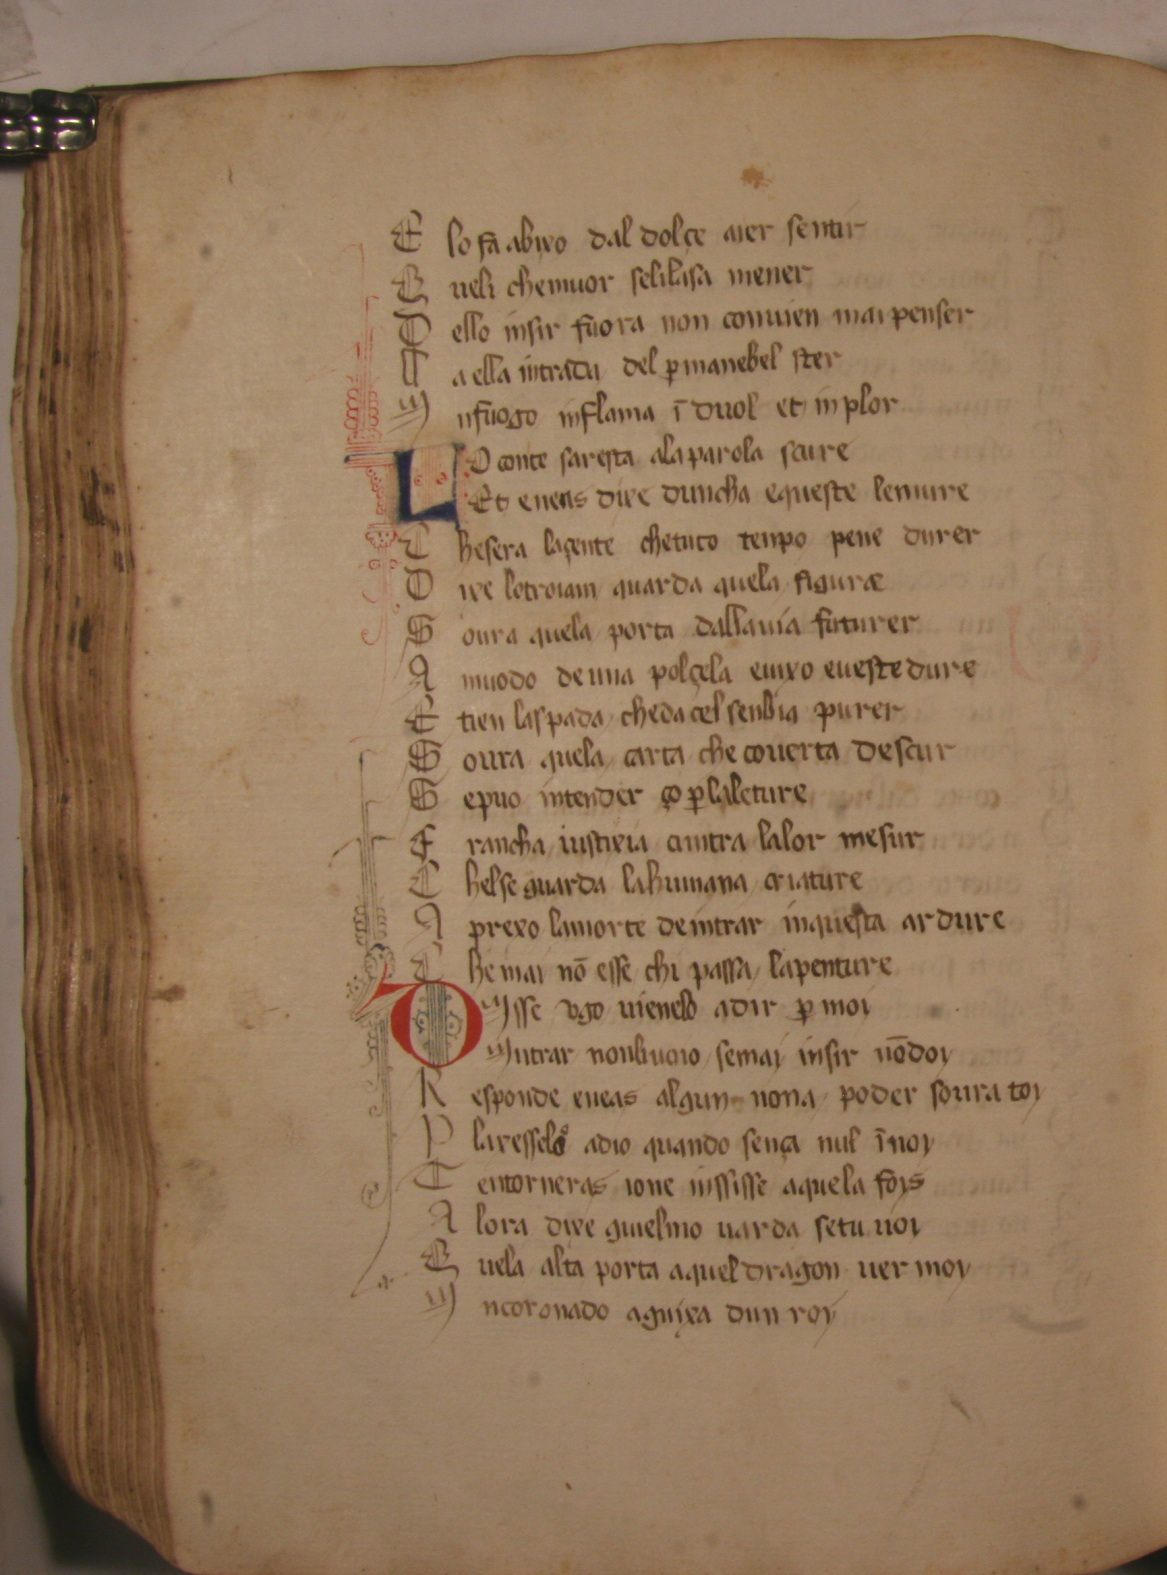 E lo fa abixo dal dolçe aier sentir
Q ueli che muor seli lasa mener
D ello insir fuora non convien mai penser
L a ella intrada del ꝑmanebel ster
I nfuogo inflama ī duol et in plor
LO conte saresta ala parola scure
Et eneas dixe duncha e queste lemure
C he sera la çente che tuto tenpo pene durer
D ixe lo troian guarda quela figuræ
S oura quela porta dallauia futurer
A muodo de una polçela euixo e ueste dure
E tien la spada che da cel senbia purer
S oura quela carta che couerta de scur
S e puo intender ço ꝑ la leture
F rancha iustixia cuntra la lor mesur
C hel se guarda la humana criature
A prexo la morte de intrar in questa ardure
C he mai nō esse chi passa la penture
DIsse ugo uienelo a dir ꝑ moi
Intrar non li uoio se mai insir nō doy
R esponde eneas algun nona poder soura toy
P laresselo adio quando sença nul īnoy
T entorneras ione inssisse a quela foys
A lora dixe guielmo uarda se tu uoy
Q uela alta porta a quel dragon uermoy
I ncoronado a guixa dun roy